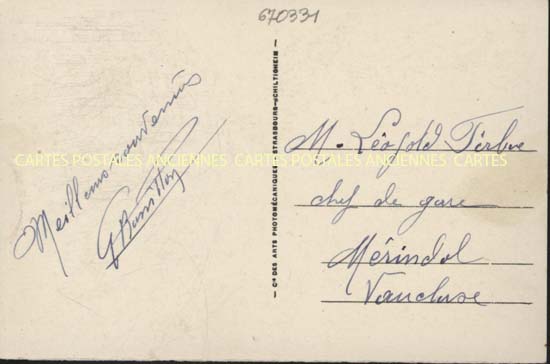 670331
Meilleurs souvenirs
M. Léopold
chef de gare
Mérindol
Vaucluse
— Cie DES ARTS PHOTOMÉCANIQUES — STRASBOURG-SCHILTIGHEIM —
CARTES POSTALES ANCIENNES CARTES POSTALES ANCIENNES CARTES